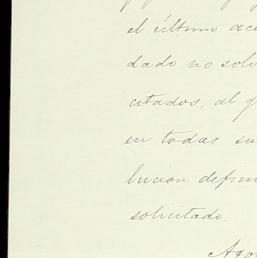 el último ac
dado no solo
citados, al g
en todas su
bucion defin
solicitado.